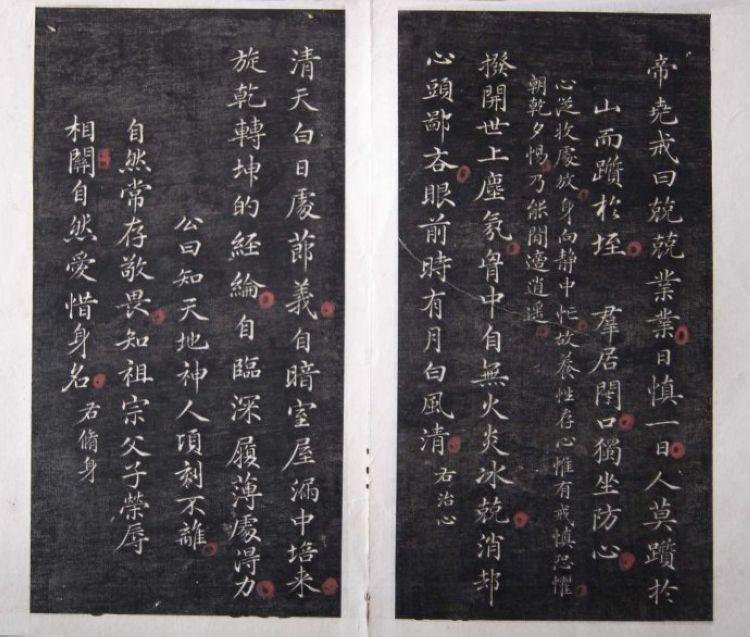 帝堯戒曰兢兢業業日慎一日人莫躓於
山而躓於垤　羣居閉口獨坐防心
心從收處放身向靜中忙故養性存心惟有戒慎恐懼
朝乾夕惕乃能閒適逍遙
撥開世上塵氛胷中自無火炎冰兢消却
心頭鄙吝眼前時有月白風清　右治心
清天白日處節義自暗室屋漏中培来
旋乾轉坤的經綸自臨深履薄處得力
公曰知天地神人頃刻不離
自然常存敬畏知祖宗父子榮辱
相關自然愛惜身名　右脩身